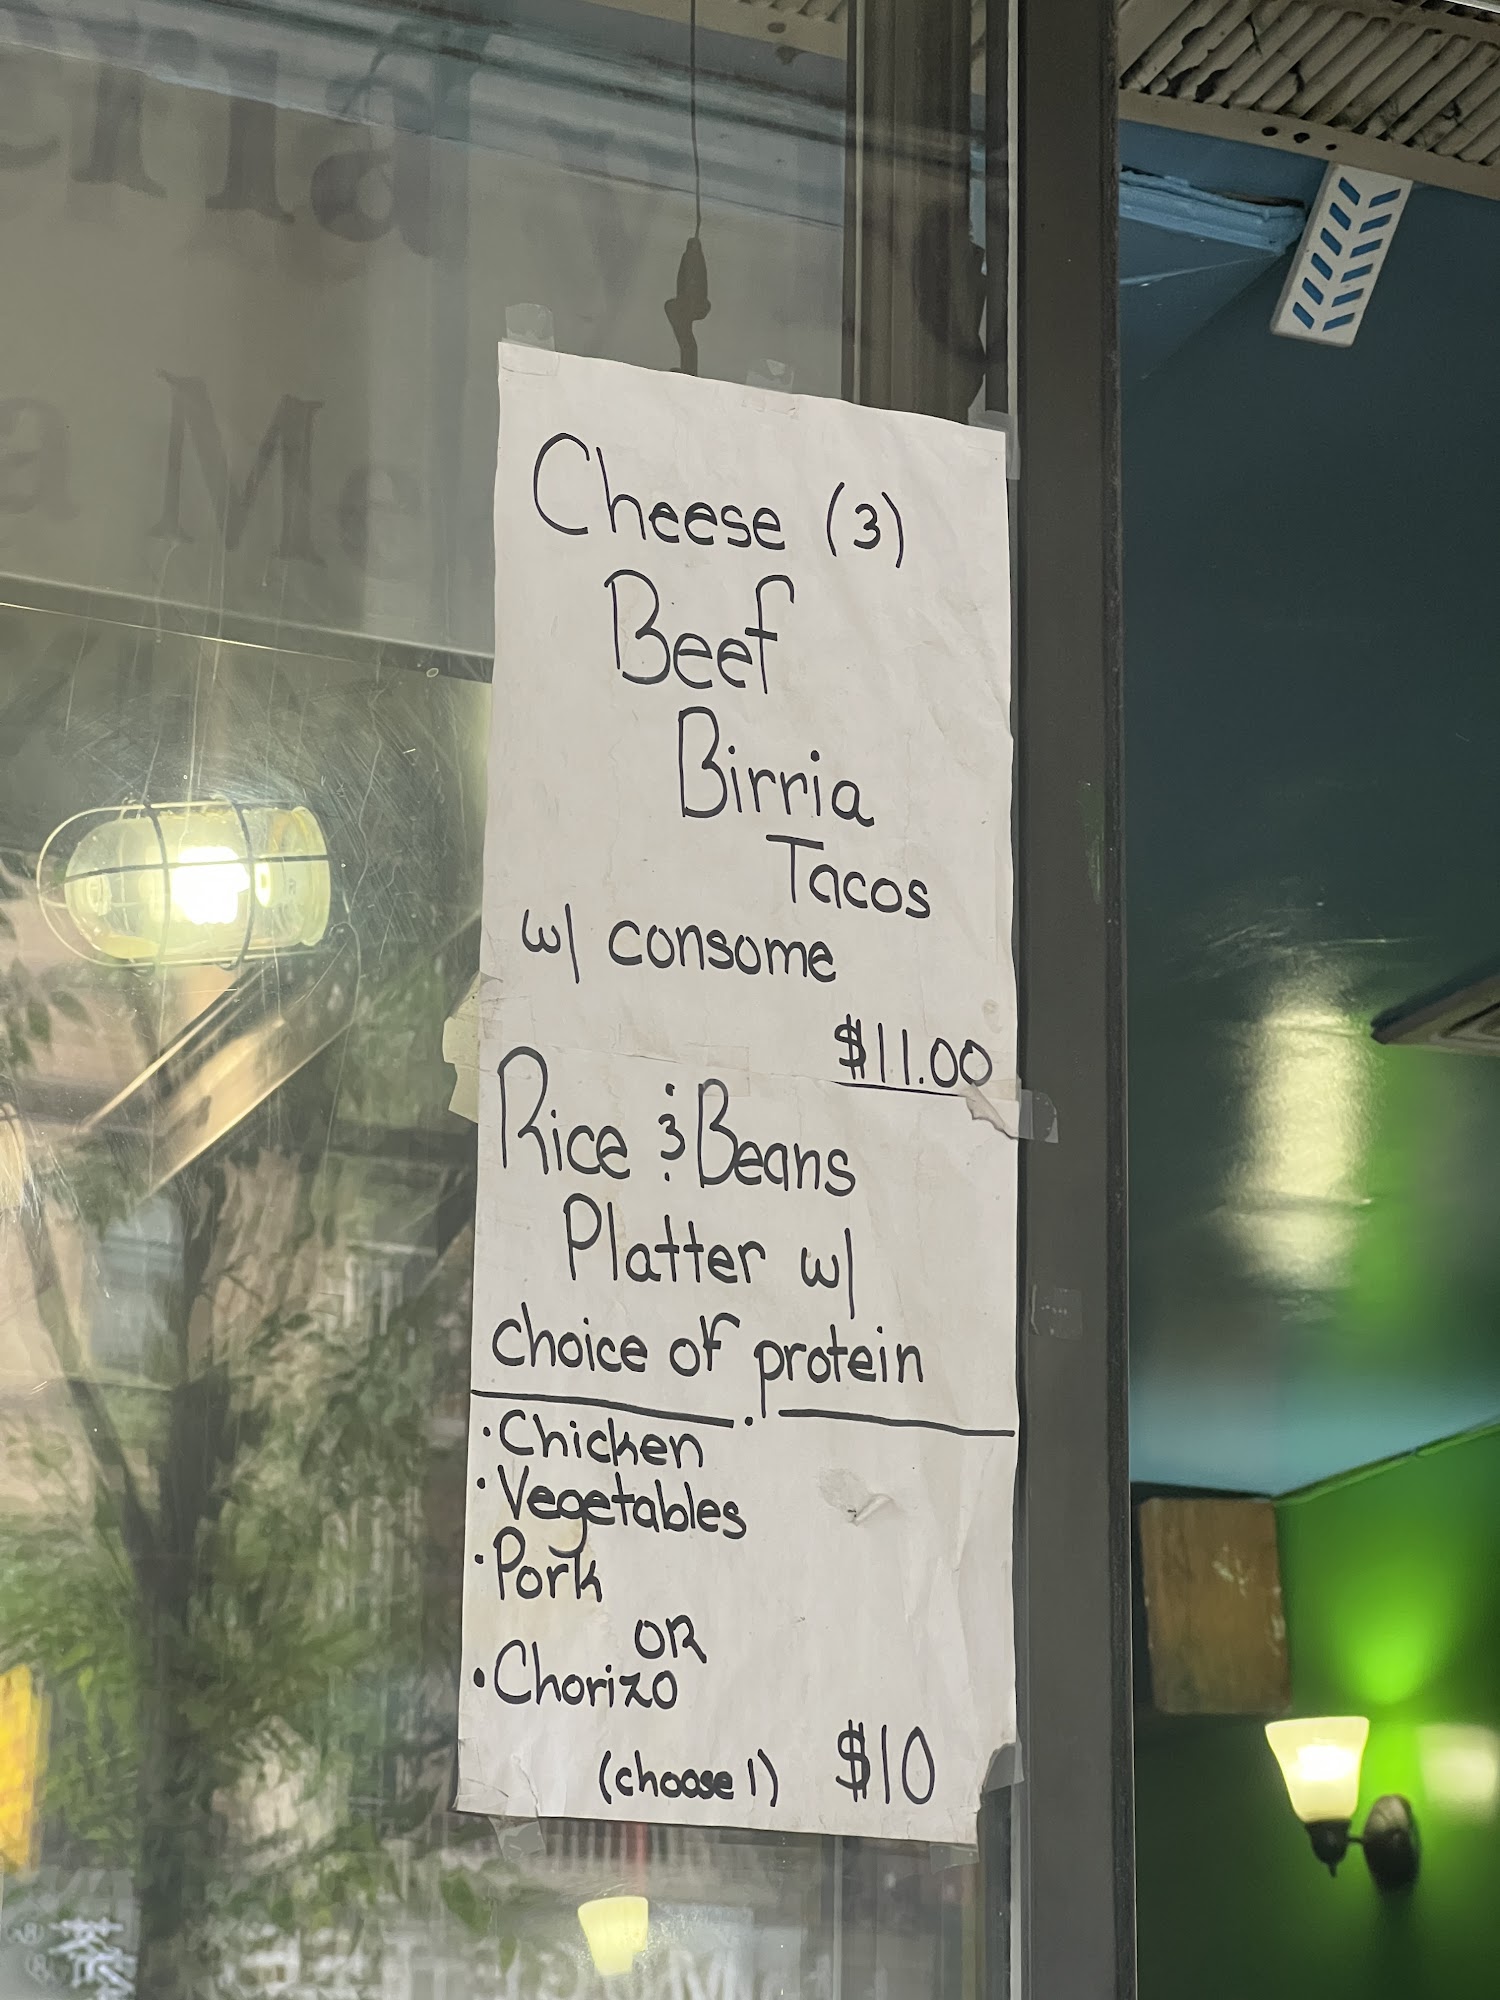 Cheese (3)
Beef
Birria
Tacos
w/ consome
$11.00
Rice & Beans
Platter w/
choice of protein
·Chicken
·Vegetables
·Pork
OR
·Chorizo
(choose 1) $10